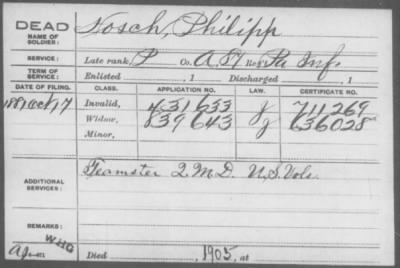 DEAD
NAME OF SOLDIER: Nosch, Philipp
SERVICE: Late rank, P Co. A, 87 Reg't Pa Inf.
TERM OF SERVICE: Enlisted , 1 Discharged , 1
DATE OF FILING. CLASS. APPLICATION NO. LAW. CERTIFICATE NO.
Oct, 17 Invalid, 431633 J 711269
Widow, 839643 J 636028
Minor,
ADDITIONAL SERVICES: Teamster 2. M. D. U.S. Vols.
REMARKS: WHG
Died , 1905, at